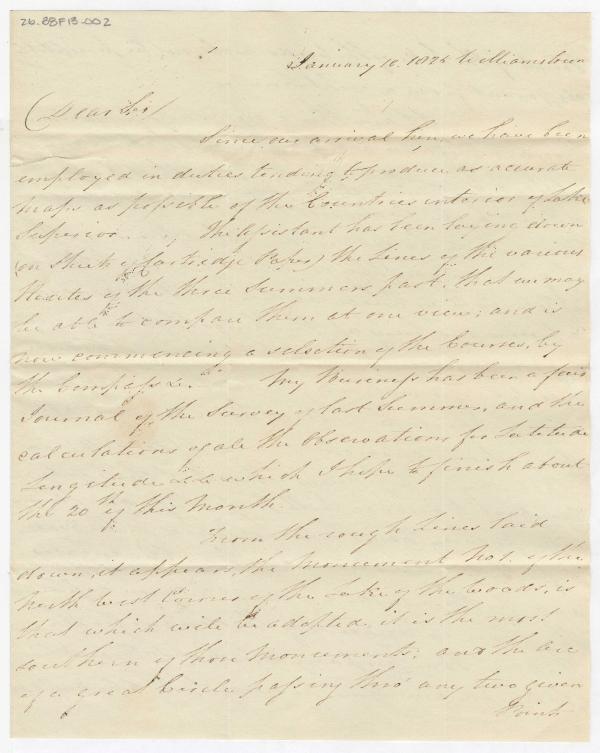 26.BBF13.002
January 10. 1826 Williamstown
Dear Sir
Since our arrival here, we have been
employed in duties tending to produce as accurate
maps as possible of the Countries interior of Lake
Superior. The Assistant has been laying down
(on Sheets of Cartridge Paper) the Lines of the various
Routes of the three Summers past, that we may
be able to compare them at one view; and is
now commencing a selection of the Courses, by
the Compass &c. My Business has been a fair
Journal of the Survey of last Summer, and the
calculations of all the Observations for Latitude
Longitude &c &c which I hope to finish about
the 20th of this Month.
From the rough Lines laid
down, it appears, the Monument No1. of the
North West Corner of the Lake of the Woods, is
that which will be adopted, it is the most
southern of those Monuments; and the arc
of a great Circle passing thro' any two given
Points